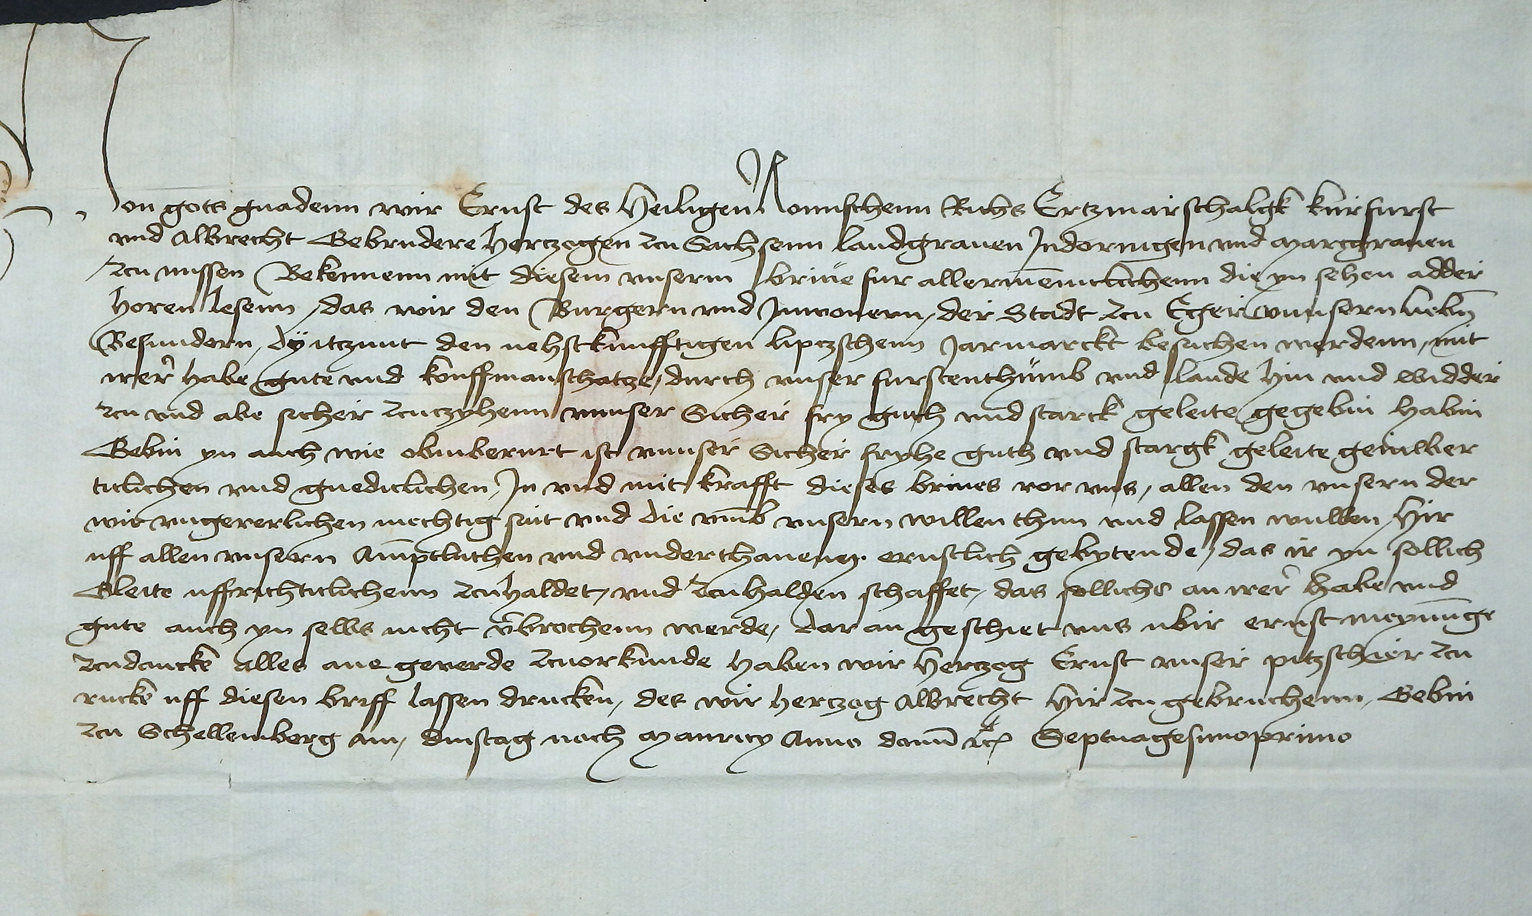 Von gots gnadenn wir Ernst des Heiligen Romischenn Richs Ertzmarschalgk kurfurst
vnd Albrecht Gebrudere Hertzogen zcu Sachsenn landgrauen Indoringen vnd Marcgrauen
zcu missen Bekennenn mit diesem vnserm briue fur allermeniclichenn die yn sehen adder
horen lesenn, das wir den Burgern vnd Inwonern, der Stadt zcu Eger vnnsern liebn
Besundern, dy itzunt den nehstkunfftigen lipczschenn Jarmarckt besuchen werdenn, mit
irer habe gute vnd kouffmanschatze, durch vnser furstenthumb vnd lande hin vnd widder
zcu vnd abe sicher zcuczyhenn vnnser Sicher fry guth vnd starck geleite gegebin habin
Gebin yn auch wie obinberurt ist vnnser Sicher fryhe guth vnd stargk geleite geinwer
ticlichen vnd gnediclichen, In vnd mit krafft dieses briues vor vns, allen den vnsern der
wir vngeuerlichen mechtig sint vnd die vmb vnsern willen thun vnd lassen wullen, Hir
uff allen vnsern Amptluthen vnd vnderthanenn ernstlich gebytende, das ir yn sollich
Gleite uffrichticlichenn zcuhaldet, vnd zcuhalden schaffet, das sollichs an irer habe vnd
gute auch yn selbs nicht vbrochenn werde, daran geschiet vns ubir ernst meynunge
zcudancke alles ane geuerde zcuorkunde haben wir Hertzog Ernst vnser pitzschier zcu
rucke uff diesen briff lassen drucken, des wir hertzog Albrecht hir zcu gebruchenn, Gebin
zcu Schellemberg am, dinstag nach Mauricy Anno domi etc Septuagesimoprimo